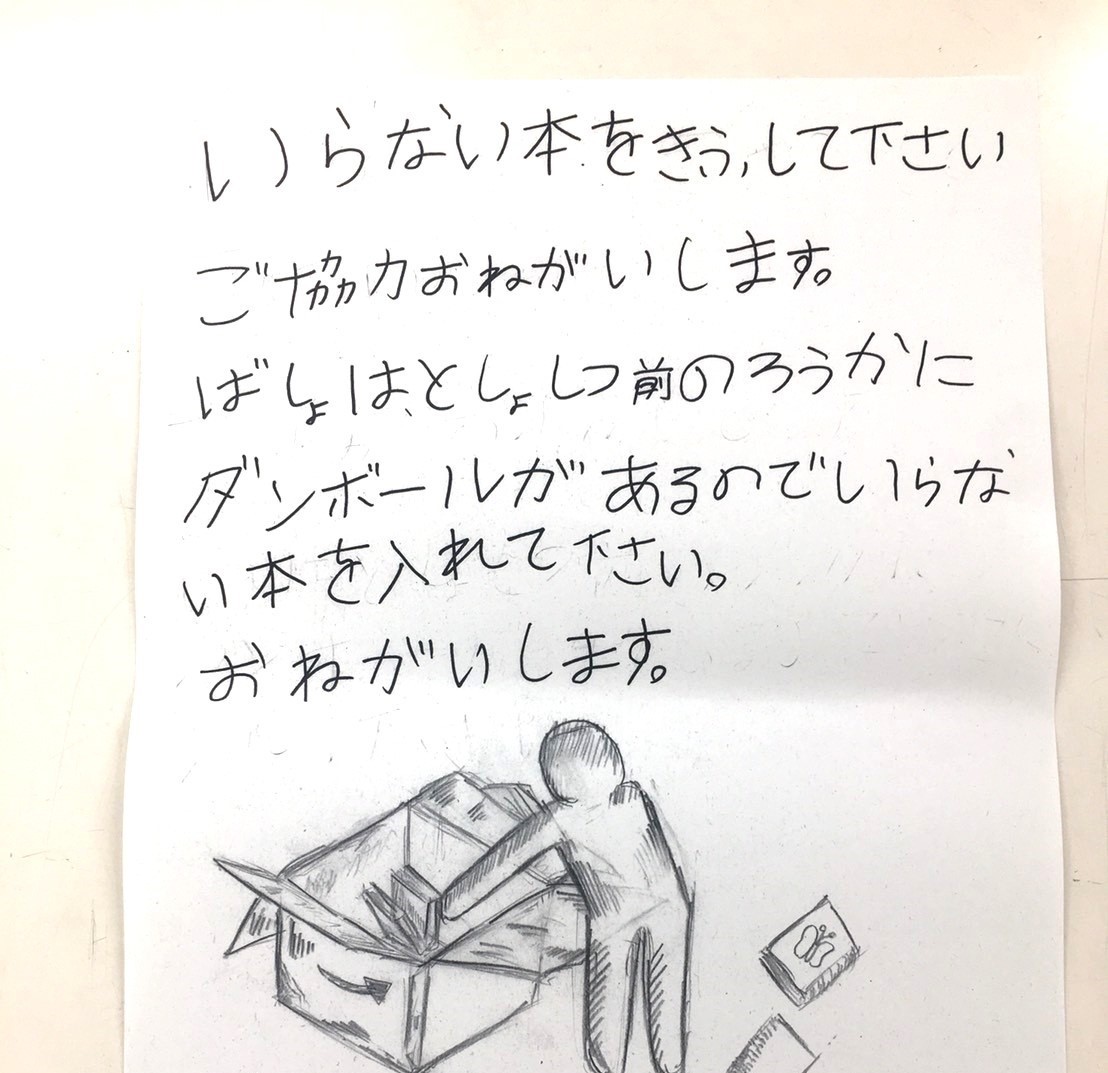 いらない本をきふ、して下さい
ご協力おねがいします。
ばしょは、としょしつ前のろうかに
ダンボールがあるのでいらな
い本を入れて下さい。
おねがいします。